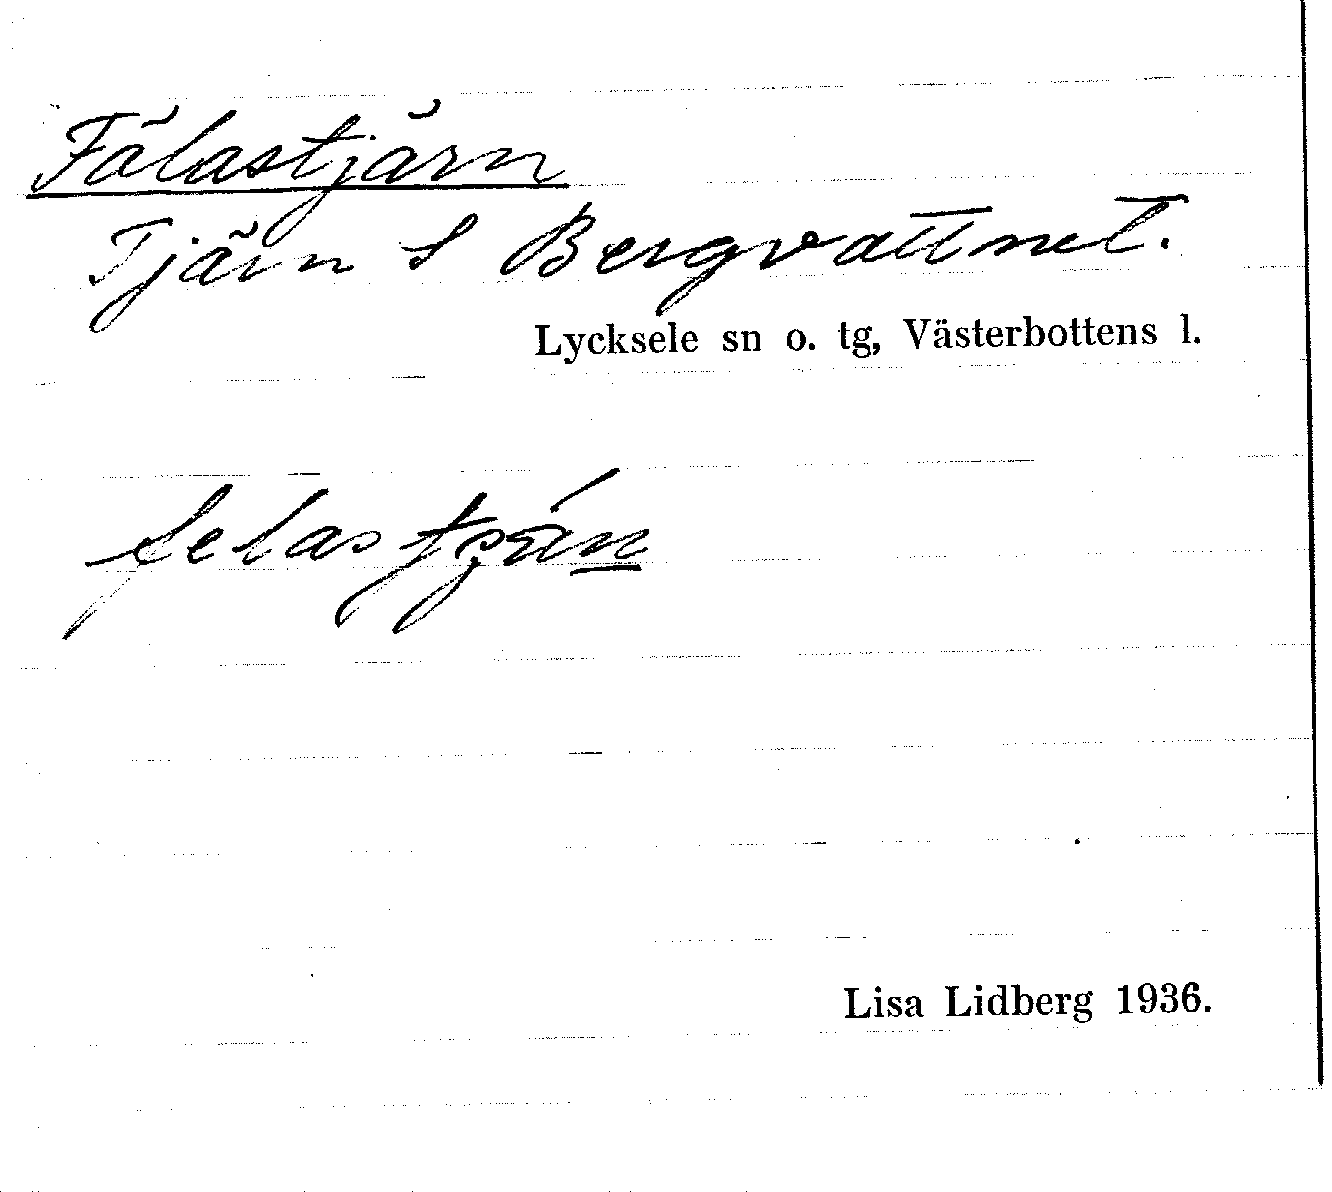 Fälastjärn
Tjärn S Bergvattnet.
Lycksele sn o. tg, Västerbottens l.
Lisa Lidberg 1936.